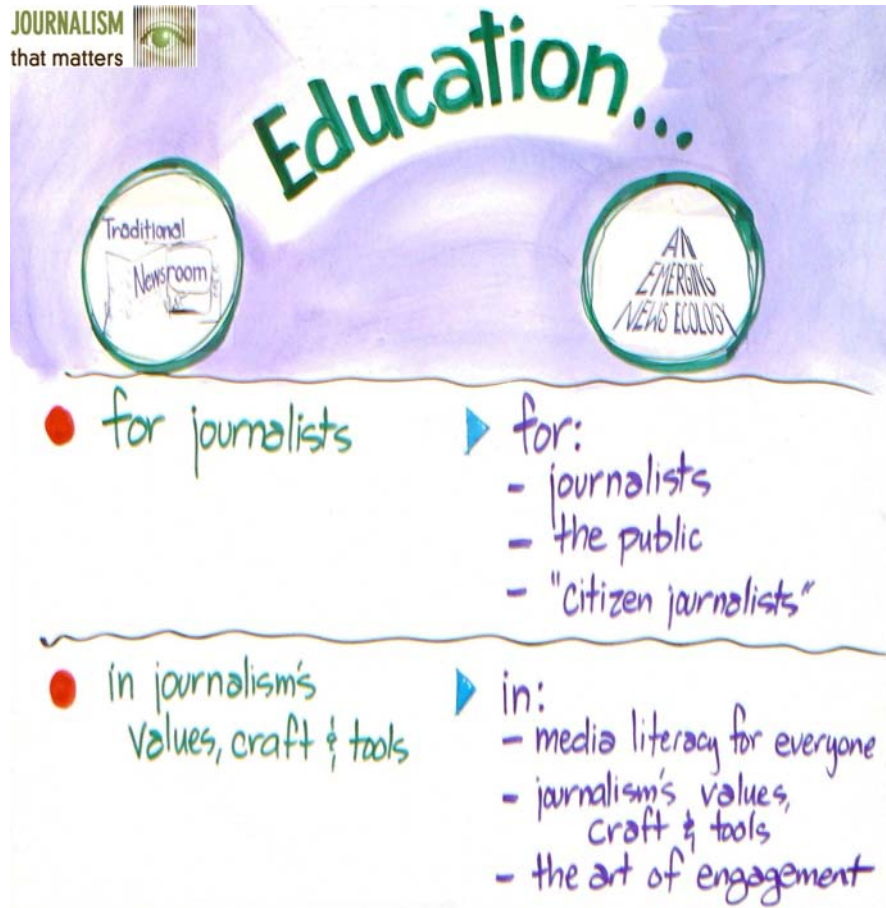 JOURNALISM
that matters
Education...
Traditional
Newsroom
AN
EMERGING
NEWS ECOLOGY
for journalists
for:
- journalists
- the public
- "citizen journalists"
in journalism's
values, craft & tools
in:
- media literacy for everyone
- journalism's values,
craft & tools
- the art of engagement